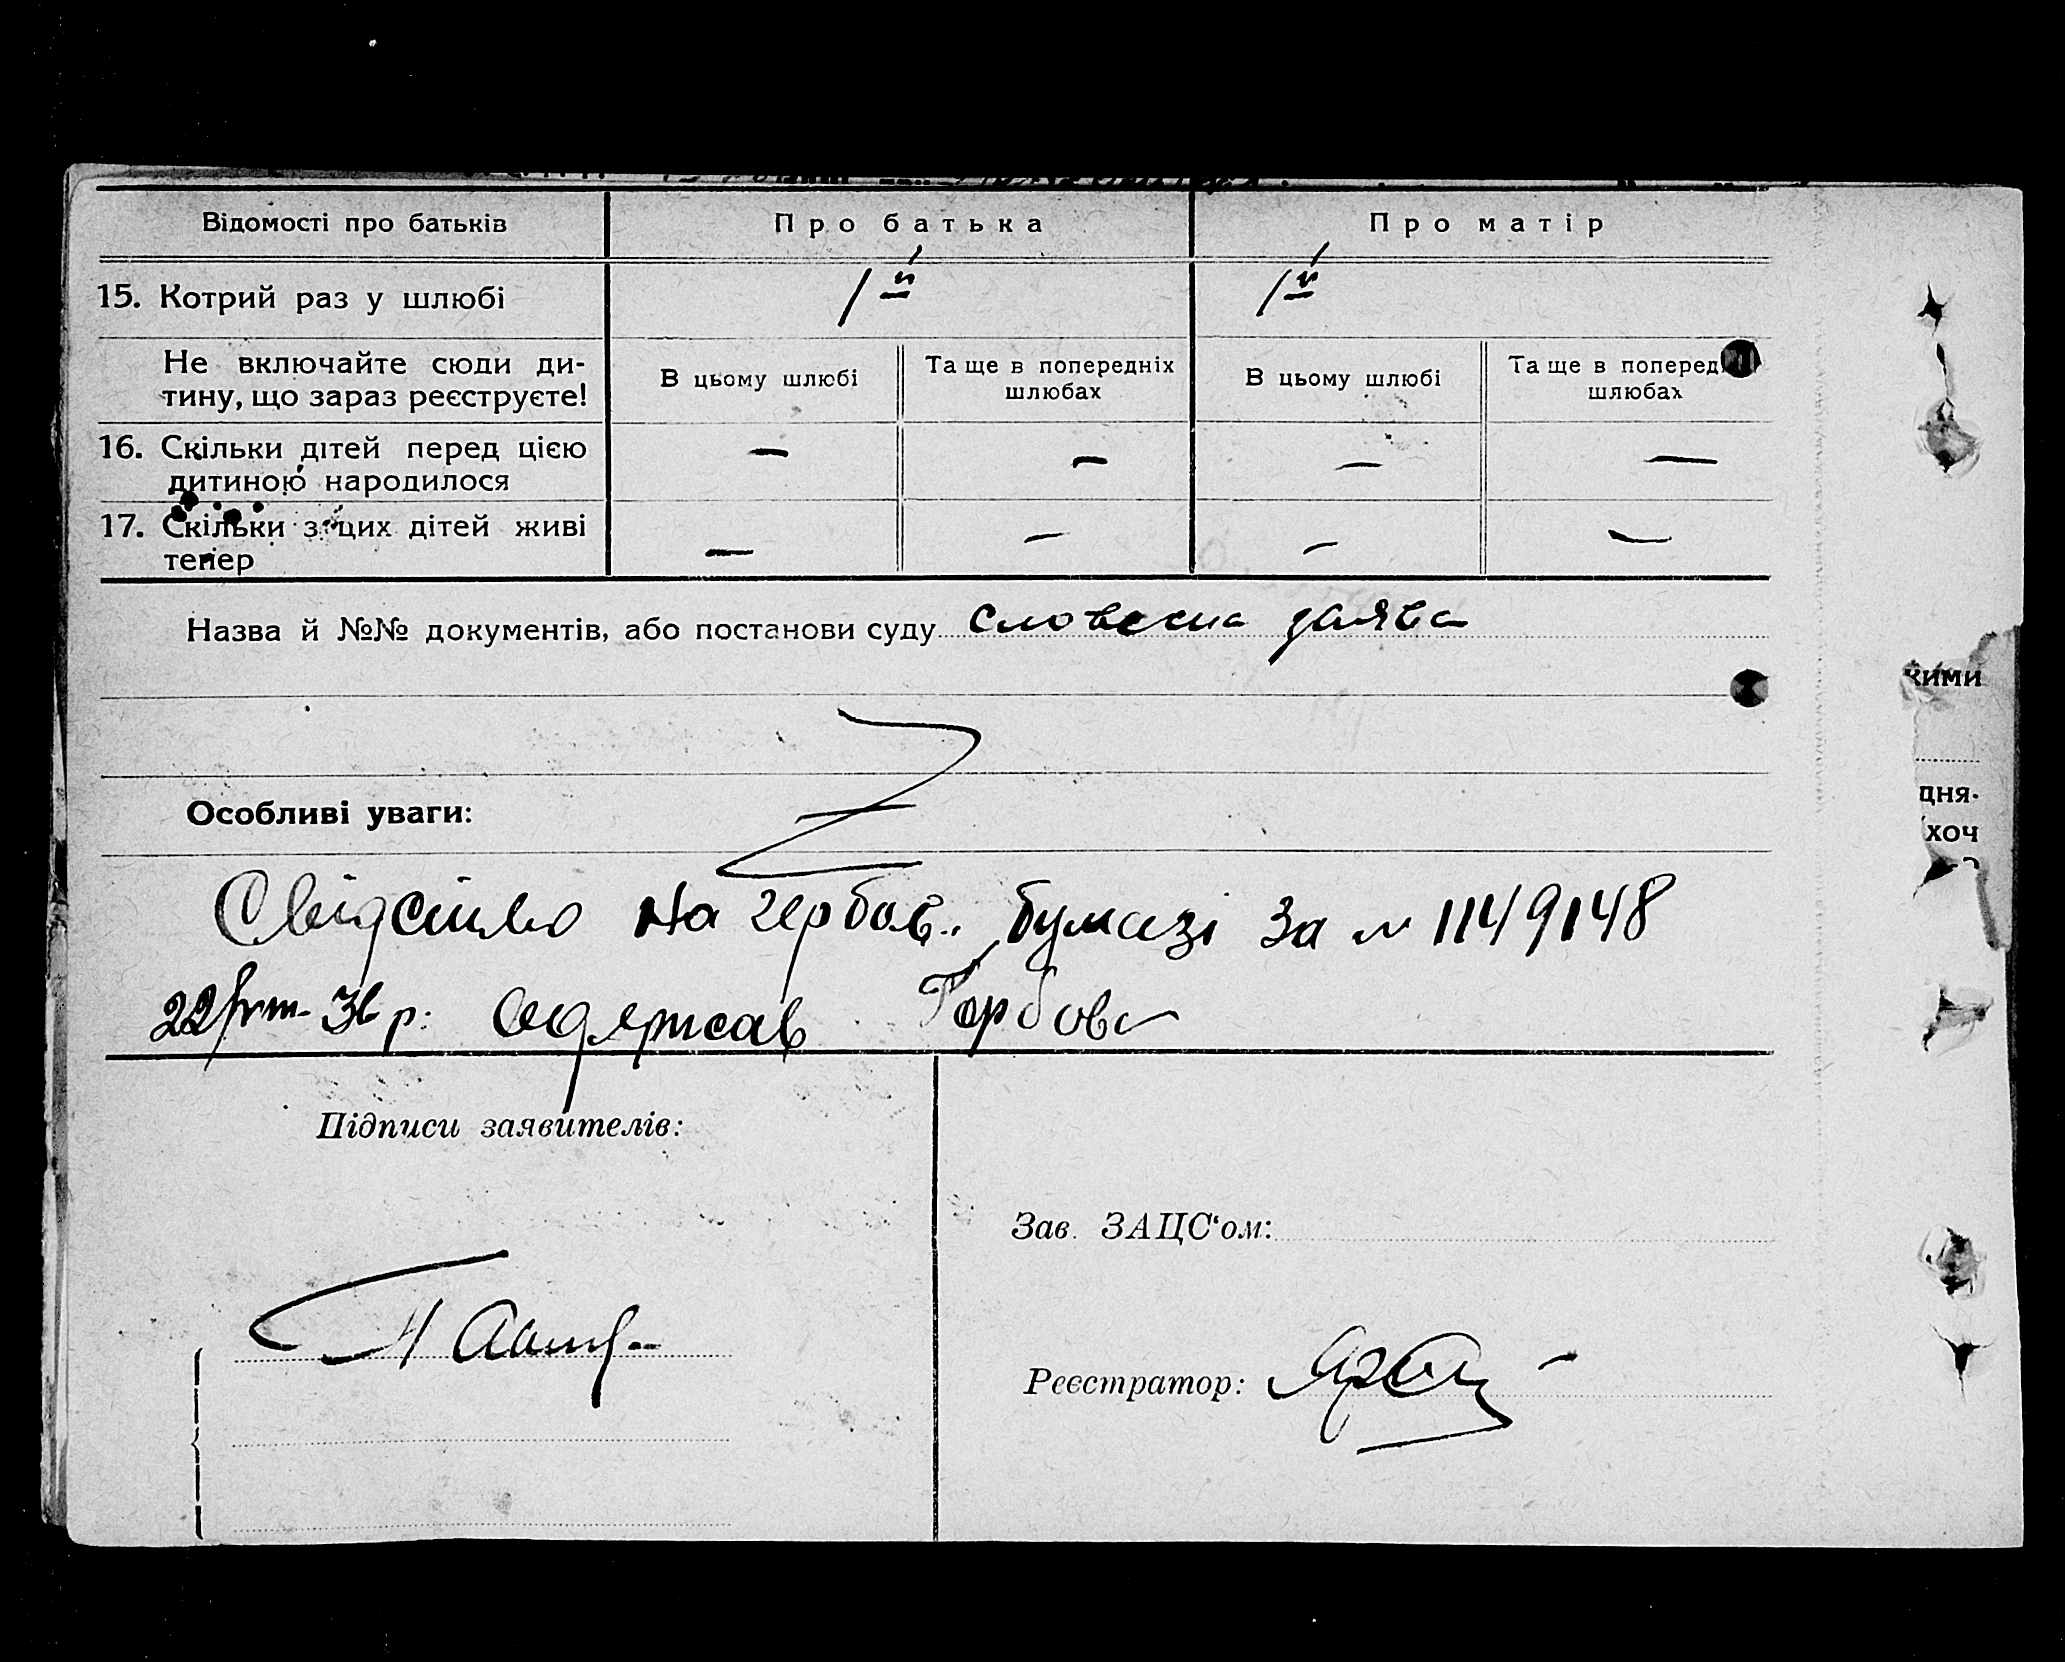 Відомості про батьків Про батька Про матір
15. Котрий раз у шлюбі 1й 1й
Не включайте сюди ди-
тину, що зараз реєструєте!
В цьому шлюбі
Та ще в попередніх
шлюбах
В цьому шлюбі
Та ще в поперед
шлюбах
16. Скільки дітей перед цією — — — —
дитиною народилося
17. Скільки з цих дітей живі — — — —
тепер
Назва й №№ документів, або постанови суду словесна заява
Особливі уваги:
Свідоцтво на гербов. бумазі за № 1149148
22/ 36 р. одержав Горбова
Підписи заявителів:
Зав. ЗАЦС‘ом:
Реєстратор:
кими
дня-
хоч